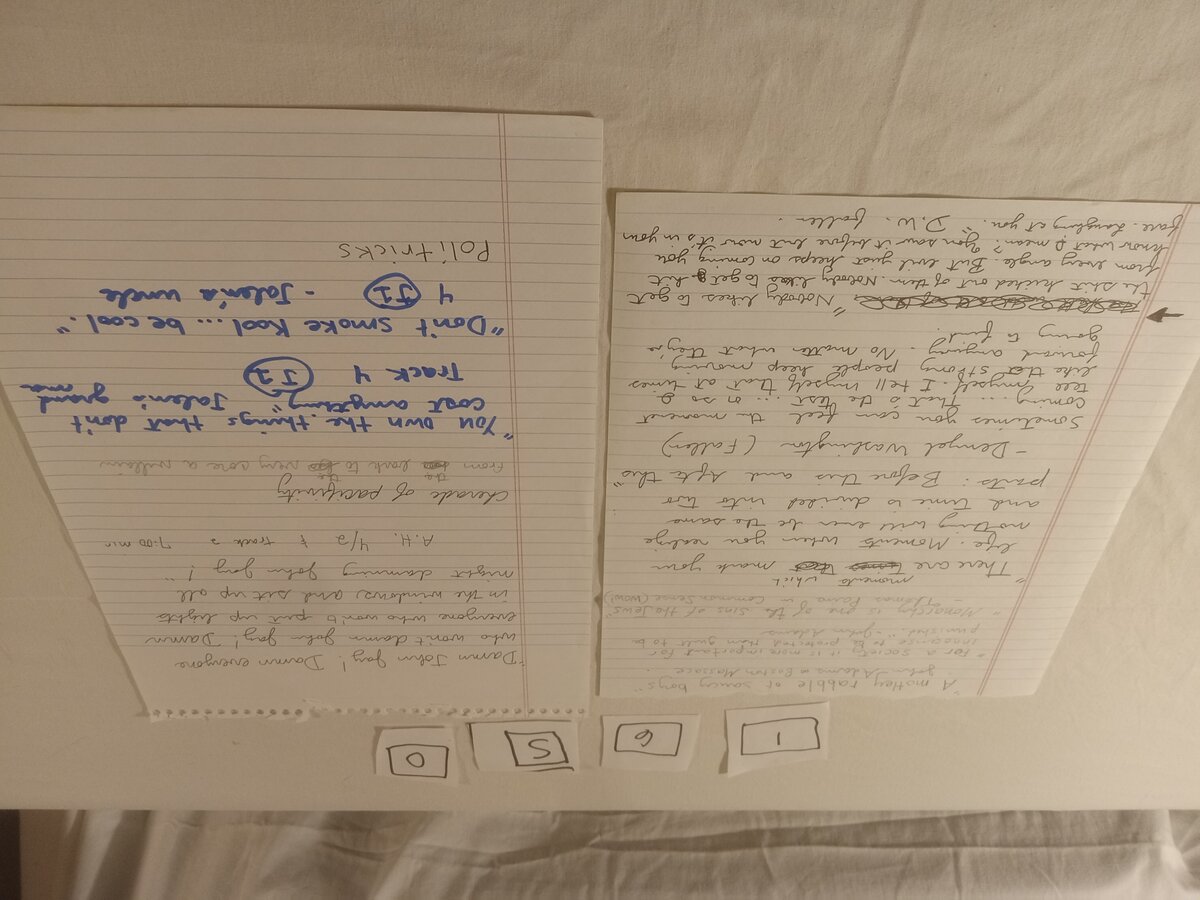 1
9
5
0
"A motley rabble of saucy boys"
John Adams → Boston Massacre.
"For a society it is more important for
innocence to be protected than guilt to be
punished" - John Adams
"Monarchy is one of the sins of the Jews"
- Thomas Paine in Common Sense (wow!)
moments which
"There are mark your
life. Moments when you realize
nothing will ever be the same
and time is divided into two
parts: Before this and After this"
- Denzel Washington (Fallen)
Sometimes you can feel the moment
coming .... That's the test ... or so I
tell myself. I tell myself that at times
like that strong people keep moving
forward anyway. No matter what they're
going to find.
"Nobody likes to get
the shit kicked out of them. Nobody likes to get hit
from every angle. But evil just keeps on coming you
know what I mean? You saw it before but now it's in your
face. Laughing at you." D.W. fallen.
"Damn John Jay! Damn everyone
who won't damn John Jay! Damn
everyone who won't put up lights
in the windows and sit up all
night damning John Jay!"
A.H. 4/2 & track 2 7:00 min
charade of pacifivity
From the lark to the very sore a villain
"You own the things that don't
cost anything" Jalen's grand ma
Track 4 J2
"Don't smoke Kool ... be cool."
4 J1 - Jalen's uncle
Politricks